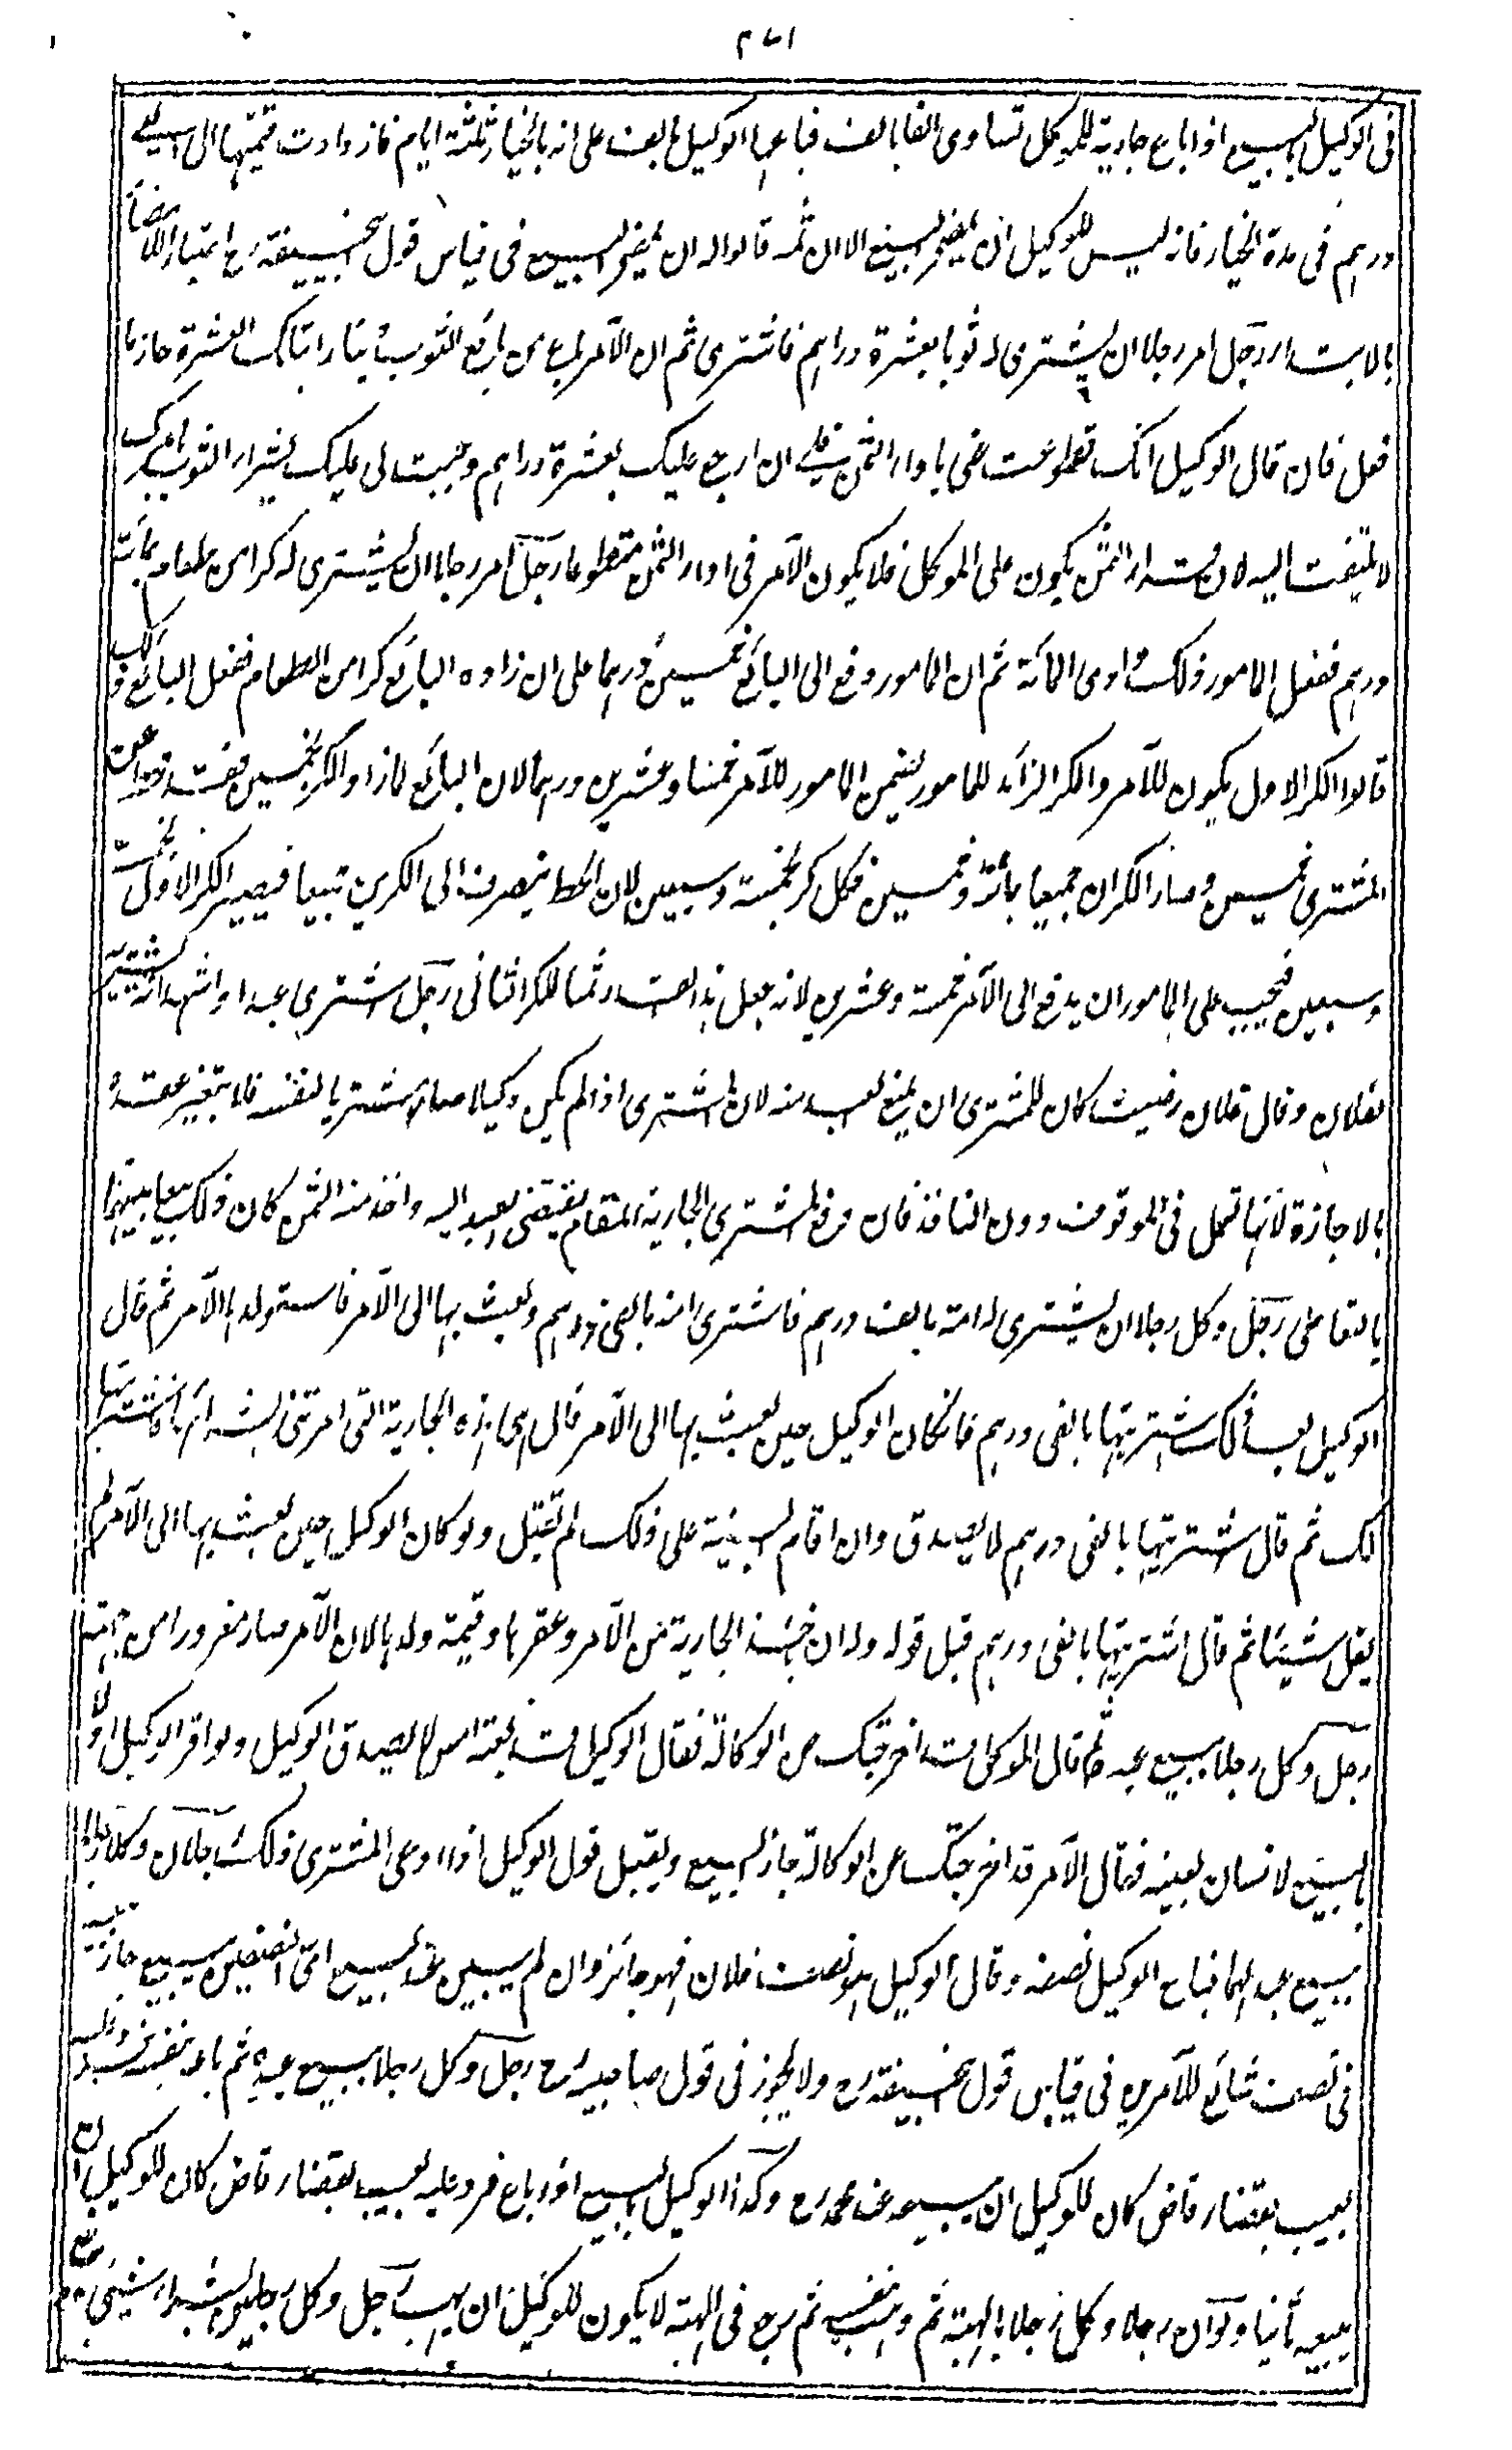 ٢٧١
فى الوكيل بالبيع اذا باع جارية للموكل تساوى الفا بالف فباعها الوكيل بالف على انه بالخيار ثلثة ايام فازدادت قيمتها الى
درهم فى مدة الخيار فانه ليس للوكيل ان يمضى البيع الا ان ثمه قالوا له ان يمضى البيع فى قياس قول ابيحنيفة رح اعتبارا للامضاء
بالابتداء رجل امر رجلا ان يشترى له ثوبا بعشرة دراهم فاشترى ثم ان الآمر اعطى بائع الثوب دينارا بتلك العشرة جاز ما
فعل فان قال الوكيل انك تطوعت عنى باداء الثمن فلى ان ارجع عليك بعشرة دراهم وجبت لى عليك بشراء الثوب بامرك
لا يلتفت اليه لان قرار الثمن يكون على الموكل فلا يكون الآمر فى اداء الثمن متطوعا رجل امر رجلا ان يشترى له كرا من طعام بمائة
درهم ففعل المامور ذلك وادى المائة ثم ان المامور دفع الى البائع خمسين درهما على ان زاده البائع كرا من الطعام ففعل البائع ذلك
قالوا الكر الاول يكون للآمر والكر الزائد للمامور يضمن المامور للآمر خمسا وعشرين درهما لان البائع لما زاد الكر بخمسين فقد حط عن
المشترى خمسين وصار الكران جميعا بمائة وخمسين فكل كر بخمسة وسبعين لان الحط ينصرف الى الكرين جميعا فيصير الكر الاول بخمسة
وسبعين فيجب على المامور ان يدفع الى الآمر خمسة وعشرين لانه جعل هذا القدر ثمنا للكر الثانى رجل اشترى عبدا واشهد انه يشتريه
لفلان وقال فلان رضيت كان للمشترى ان يمنع العبد منه لان المشترى اذا لم يكن وكيلا صار مشتريا لنفسه فلا يتغير عقده
بالاجازة لانها تعمل فى الموقوف دون النافذ فان دفع المشترى العبد اليه واخذ منه الثمن كان ذلك بيعا بينهما
بالتعاطى رجل وكل رجلا ان يشترى له امة بالف درهم فاشترى امة بالفى درهم وبعث بها الى الآمر فاستولدها الآمر ثم قال
الوكيل بعد ذلك اشتريتها بالفى درهم فان كان الوكيل حين بعث بها الى الآمر قال هى هذه الجارية التى امرتنى بشرائها فاشتريتها
لك ثم قال اشتريتها بالفى درهم لا يصدق وان اقام البينة على ذلك لم تقبل ولو كان الوكيل حين بعث بها الى الآمر لم
يقل شيئا ثم قال اشتريتها بالفى درهم قبل قوله وله ان ياخذ الجارية من الآمر وعقرها وقيمة ولدها لان الآمر صار مغرورا من جهته
رجل وكل رجلا ببيع عبده ثم قال الموكل قد اخرجتك من الوكالة فقال الوكيل قد بعته امس لا يصدق الوكيل ولو اقر الوكيل اولا
بالبيع لانسان بعينه فقال الآمر قد اخرجتك عن الوكالة جاز البيع ويقبل قول الوكيل اذا ادعى المشترى ذلك رجلان وكلا رجلا
ببيع عبد لهما فباع الوكيل نصفه وقال الوكيل هو نصف فلان فهو جائز وان لم يبين عند البيع اى النصفين يبيع جاز بيعه
فى نصف شائع للآمرين فى قياس قول ابيحنيفة رح ولا يجوز فى قول صاحبيه رح رجل وكل رجلا ببيع عبده ثم باعه بنفسه فرد عليه
بعيب بقضاء قاض كان للوكيل ان يبيعه عند محمد رح وكذا الوكيل بالبيع اذا باع فرد عليه بعيب بقضاء قاض كان للوكيل ان
يبيعه ثانيا ولو ان رجلا وكل رجلا بالهبة ثم وهبه بنفسه ثم رجع فى الهبة لا يكون للوكيل ان يهب رجل وكل رجلين بشراء شيئ